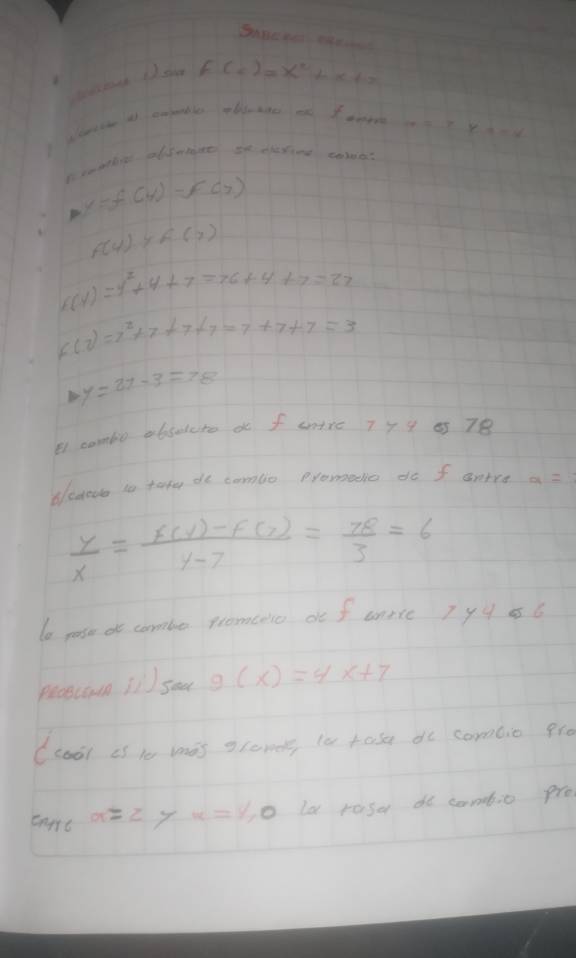 SABERES
PROBLEMA i) sea f(x)=x²+x+1
cambio absoluto de f entre
El cambio absoluto se define como:
▶y=f(4)-f(1)
f(4) y f(1)
f(4)=4²+4+1=16+4+1=21
f(1)=1²+1+1+1=1+1+1=3
▶y=21-3=18
El cambio absoluto de f entre 1 y 4 es 18
b/calcula la tafa de cambio promedio de f entre a=
y/x = f(4)-f(1)/4-1 = 18/3 = 6
la tasa de cambio promedio de f entre 1 y 4 es 6
PROBLEMA ii) sea g(x)=4x+1
¿cuál es la más grande, la tasa de cambio pro
entre a=2 y a=4, o la tasa de cambio pro